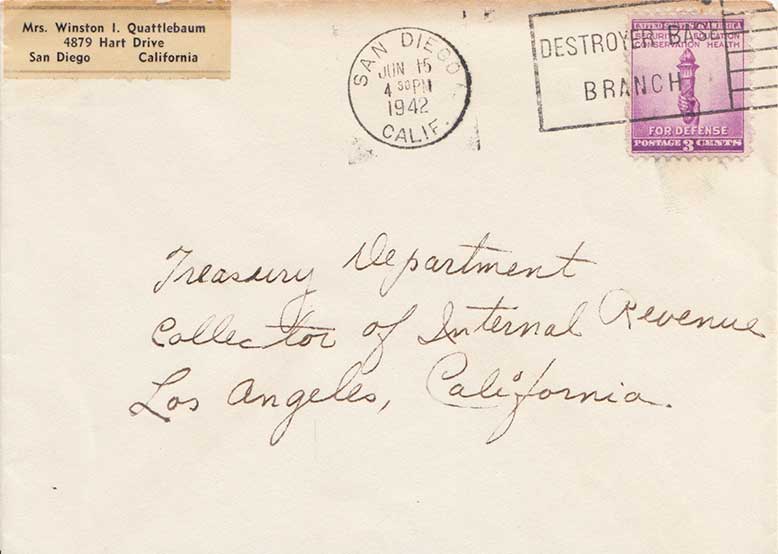 Mrs. Winston I. Quattlebaum
4879 Hart Drive
San Diego California
SAN DIEGO
JUN 15
4 30 PM
1942
CALIF.
DESTROYER BASE
BRANCH
UNITED STATES OF AMERICA
SECURITY EDUCATION
CONSERVATION HEALTH
FOR DEFENSE
POSTAGE 3 CENTS
Treasury Department
Collector of Internal Revenue
Los Angeles, California.